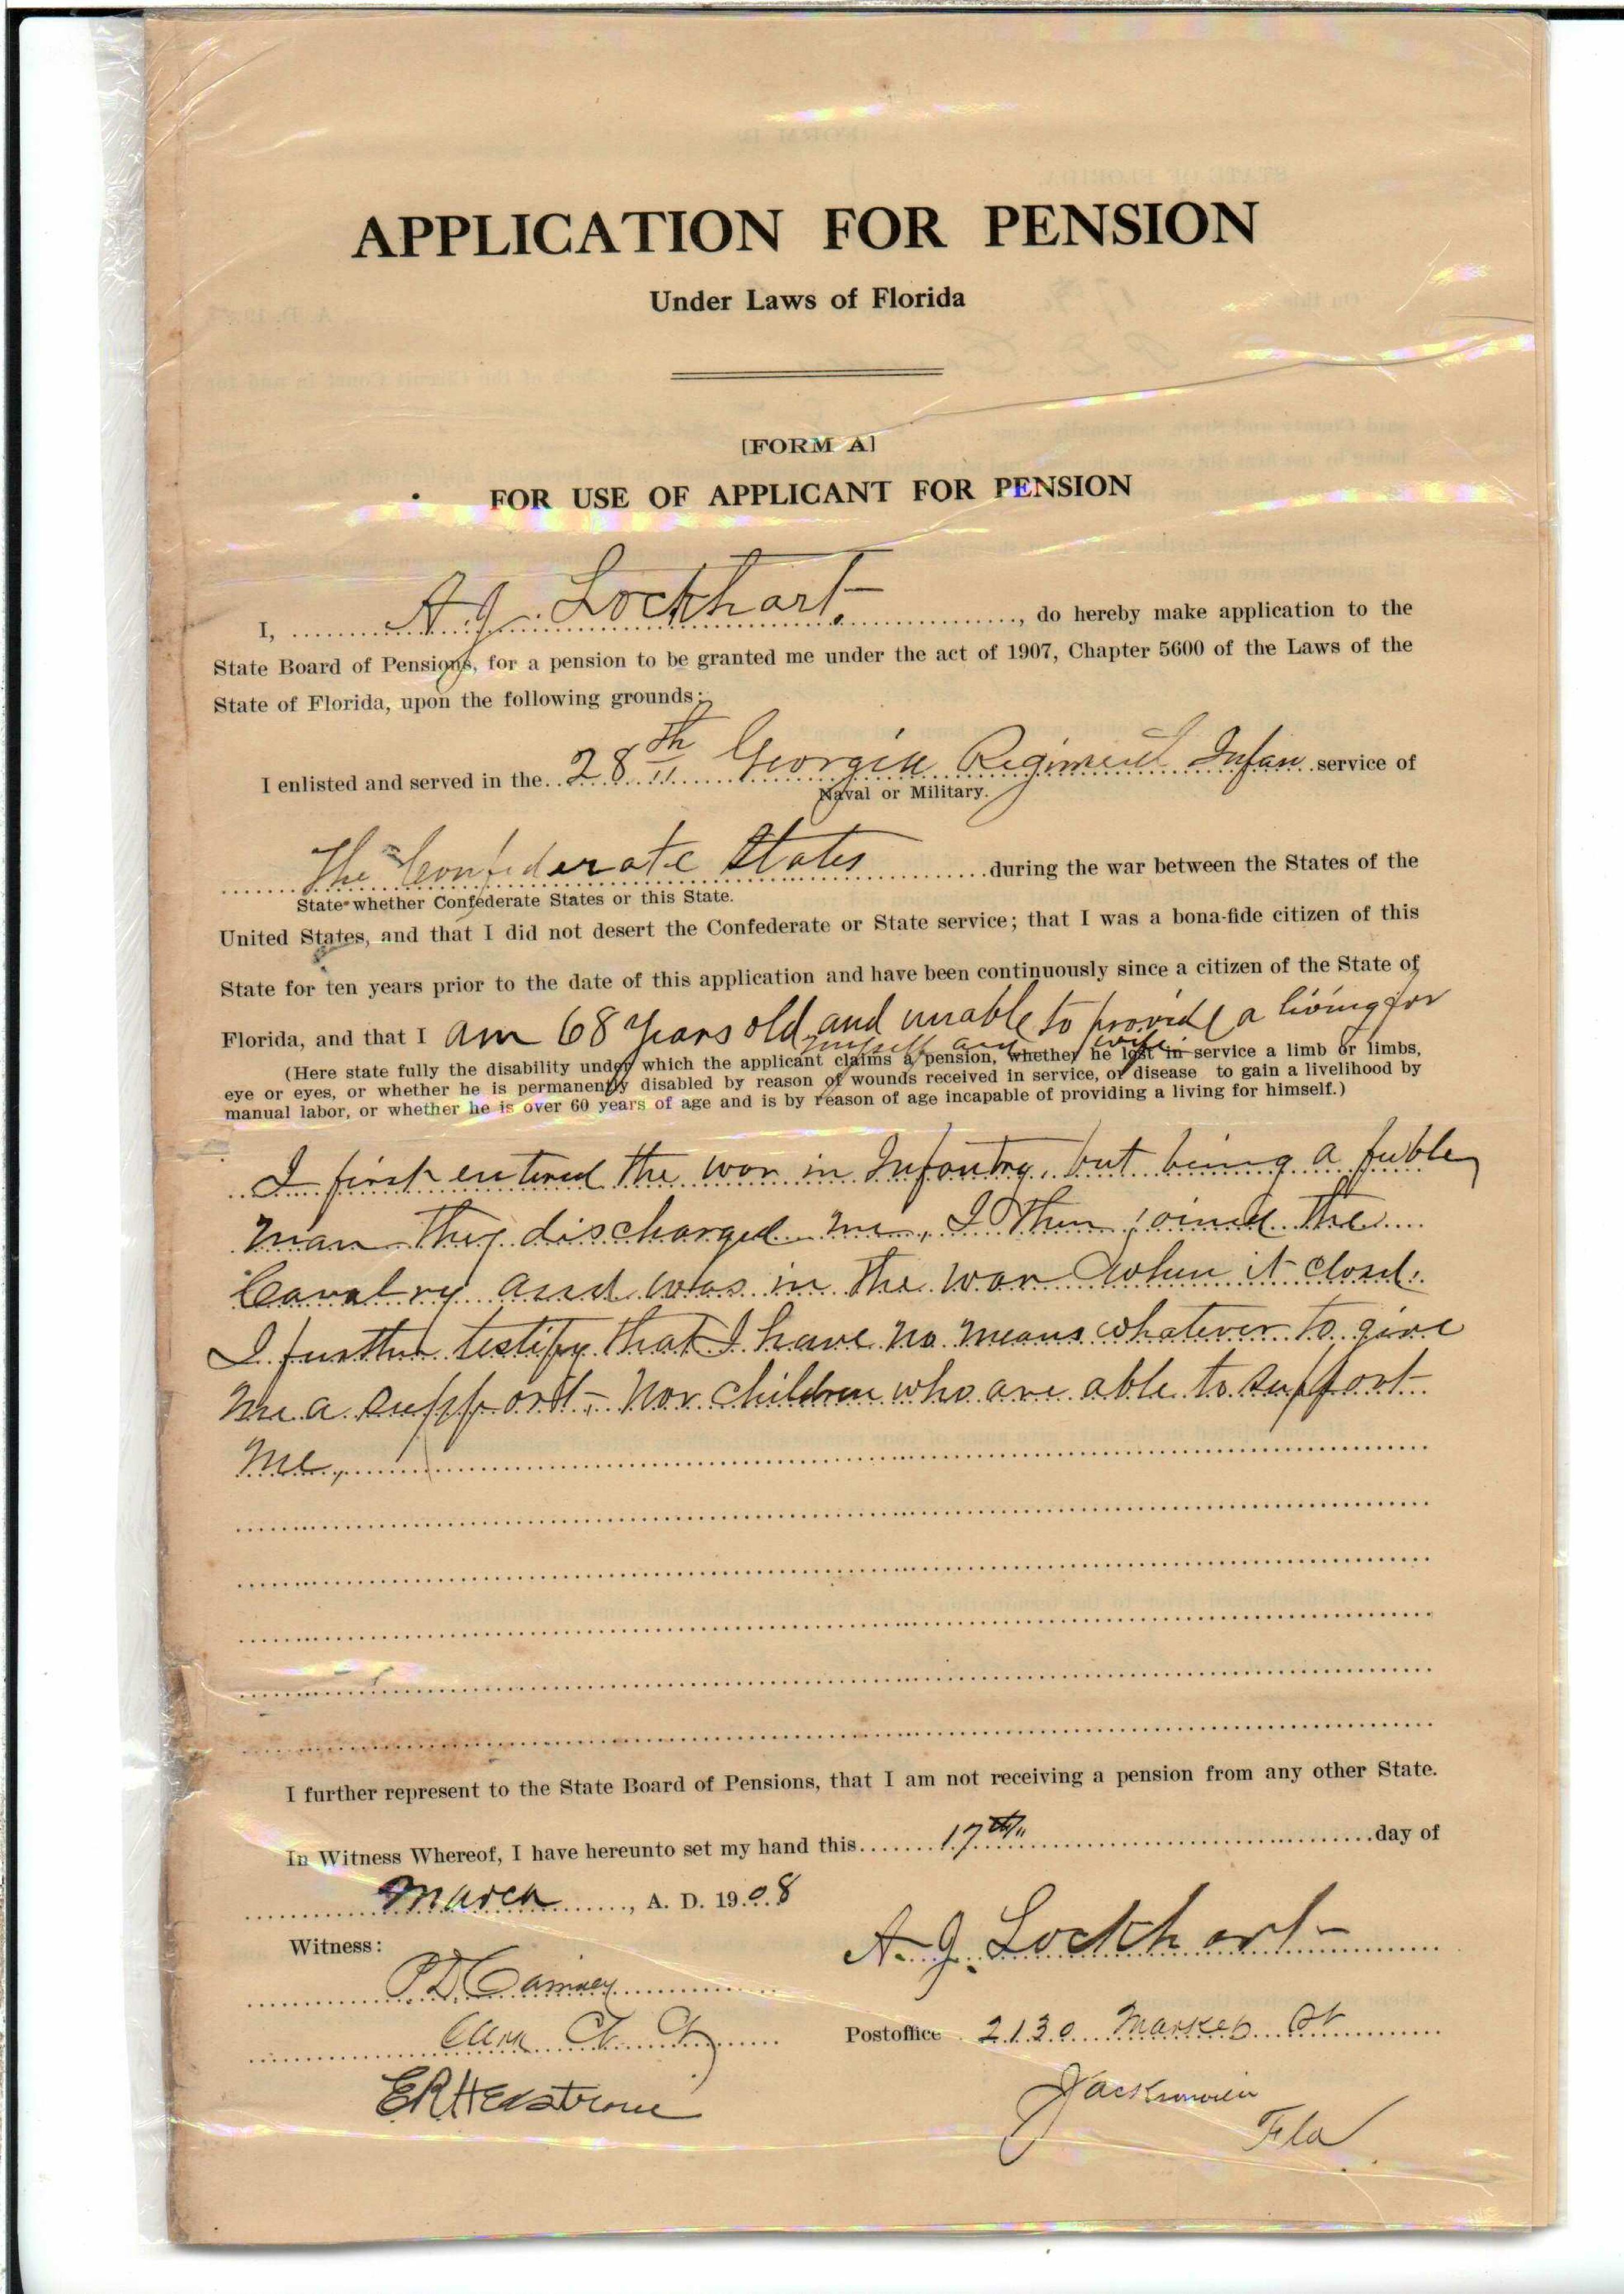 APPLICATION FOR PENSION
Under Laws of Florida
[FORM A]
FOR USE OF APPLICANT FOR PENSION
I, A. J. Lockhart, do hereby make application to the
State Board of Pensions, for a pension to be granted me under the act of 1907, Chapter 5600 of the Laws of the
State of Florida, upon the following grounds:
I enlisted and served in the 28th Georgia Regiment Infan service of
Naval or Military.
The Confederate States during the war between the States of the
State whether Confederate States or this State.
United States, and that I did not desert the Confederate or State service; that I was a bona-fide citizen of this
State for ten years prior to the date of this application and have been continuously since a citizen of the State of
Florida, and that I am 68 years old and unable to provide a living for
myself and wife
(Here state fully the disability under which the applicant claims a pension, whether he lost in service a limb or limbs,
eye or eyes, or whether he is permanently disabled by reason of wounds received in service, or disease to gain a livelihood by
manual labor, or whether he is over 60 years of age and is by reason of age incapable of providing a living for himself.)
I first entered the war in Infantry, but being a feeble
man they discharged me, I then joined the
Cavalry and was in the war when it closed.
I further testify that I have no means whatever to give
me a support, nor children who are able to support
me,
I further represent to the State Board of Pensions, that I am not receiving a pension from any other State.
In Witness Whereof, I have hereunto set my hand this 17th day of
March, A. D. 1908
Witness: A. J. Lockhart
P D
Postoffice 2130 Market St
Jacksonville
Fla